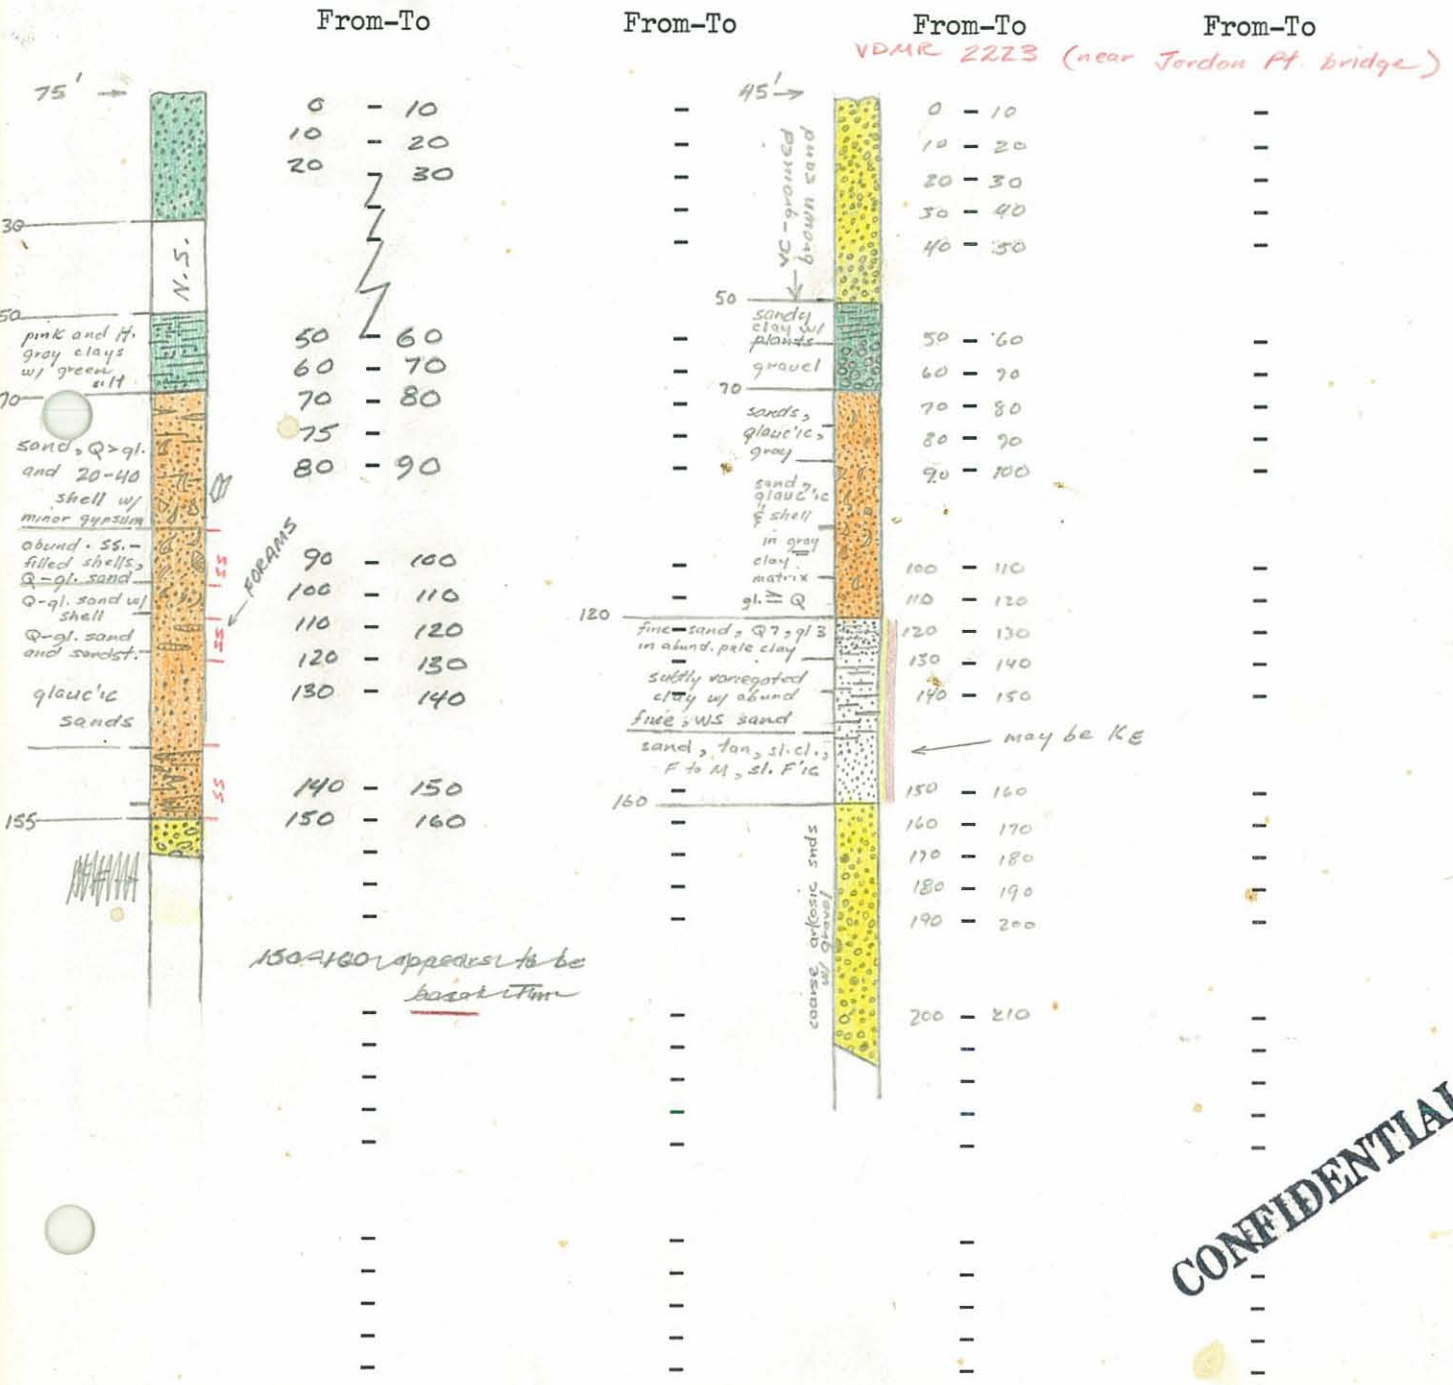 From-To From-To From-To From-To
VDMR 2223 (near Jordon Pt. bridge)
75'
30
N.S.
50
pink and lt.
gray clays
w/ green
silt
70
sand, Q>gl.
and 20-40
shell w/
minor gypsum
abund. ss.-
filled shells,
Q-gl. sand
Q-gl. sand w/
shell
Q-gl. sand
and sandst.
glauc'ic
sands
155
SS
SS
SS
FORAMS
0 - 10
10 - 20
20 - 30
50 - 60
60 - 70
70 - 80
75 -
80 - 90
90 - 100
100 - 110
110 - 120
120 - 130
130 - 140
140 - 150
150 - 160
150-160 appears to be
basal
45'
VC-grained
brown sand
50
sandy
clay w/
plants
gravel
70
sands,
glauc'ic,
gray
sand,
glauc'ic
& shell
in gray
clay
matrix
gl. ≥ Q
120
fine sand, Q7, gl3
in abund. pale clay
subtly variegated
clay w/ abund
fine, WS sand
sand, tan, sl. cl.,
F to M, sl. F'ic
160
coarse arkosic snds
w/ gravel
0 - 10
10 - 20
20 - 30
30 - 40
40 - 50
50 - 60
60 - 70
70 - 80
80 - 90
90 - 100
100 - 110
110 - 120
120 - 130
130 - 140
140 - 150
may be KE
150 - 160
160 - 170
170 - 180
180 - 190
190 - 200
200 - 210
CONFIDENTIAL